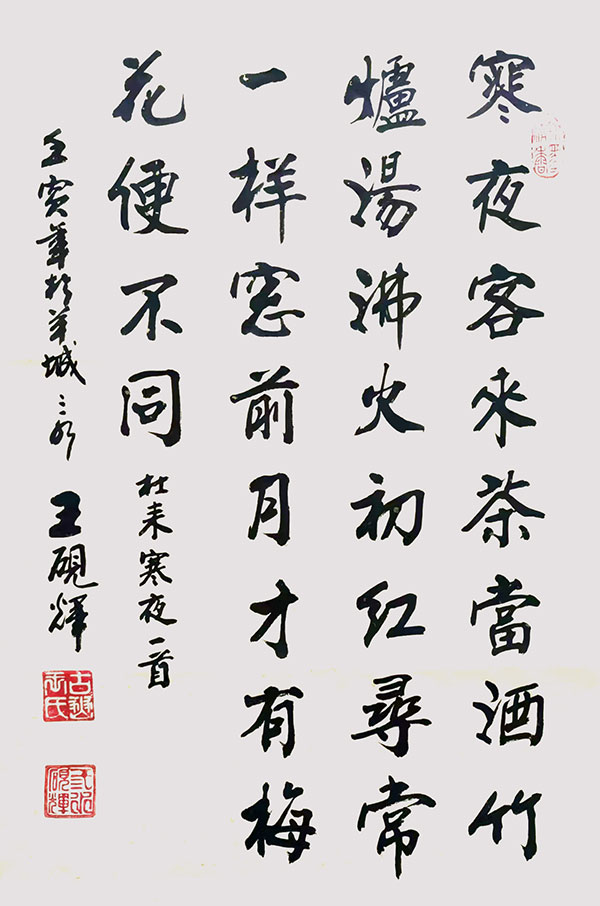 寒夜客来茶當酒竹
爐湯沸火初红尋常
一样窓前月才有梅
花便不同
杜耒寒夜一首
壬寅年於羊城
王硯輝
硯輝